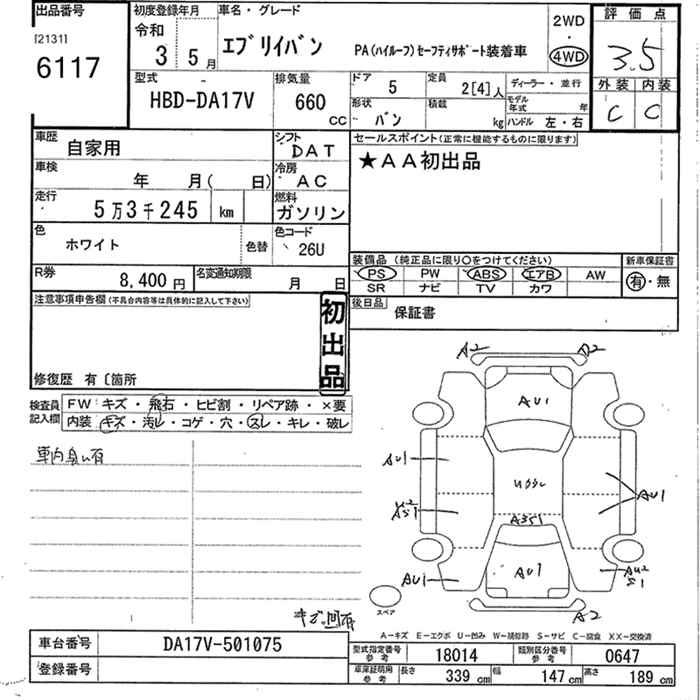 出品番号
[2131]
6117
初度登録年月
令和
3 5月
車名・グレード
エブリイバン
PA(ハイルーフ)セーフティサポート装着車
2WD
・
4WD
評価点
3.5
外装 内装
C C
型式
HBD-DA17V
排気量
660
CC
ドア
5
定員
2[4]人
ディーラー・並行
形状
バン
積載
kg
モデル年式
年
ハンドル 左・右
車歴
自家用
シフト
DAT
車検
年 月( 日)
冷房
AC
走行
5万3千245 km
燃料
ガソリン
色
ホワイト
色替
色コード
26U
R券
8,400円
名変通知期限
月 日
セールスポイント(正常に機能するものに限ります)
★AA初出品
装備品(純正品に限り○をつけてください)
PS PW ABS エアB AW
SR ナビ TV カワ
新車保証書
有・無
後日品
保証書
注意事項申告欄(不具合内容等は具体的に記入して下さい)
初出品
修復歴 有〔箇所
検査員記入欄
FW: キズ・飛石・ヒビ割・リペア跡・×要
内装: キズ・汚レ・コゲ・穴・スレ・キレ・破レ
車内臭い有
キズ凹有
A2
A2
AU1
AU1
U93L
AU1
A3S1
AU2
S1
AU1
AU1
AU2
S1
A2
スペア
A-キズ E-エクボ U-凹み W-補修跡 S-サビ C-腐食 XX-交換済
車台番号
DA17V-501075
登録番号
型式指定番号
参考
18014
類別区分番号
参考
0647
車庫証明用
参考
長さ
339 cm
幅
147 cm
高さ
189 cm